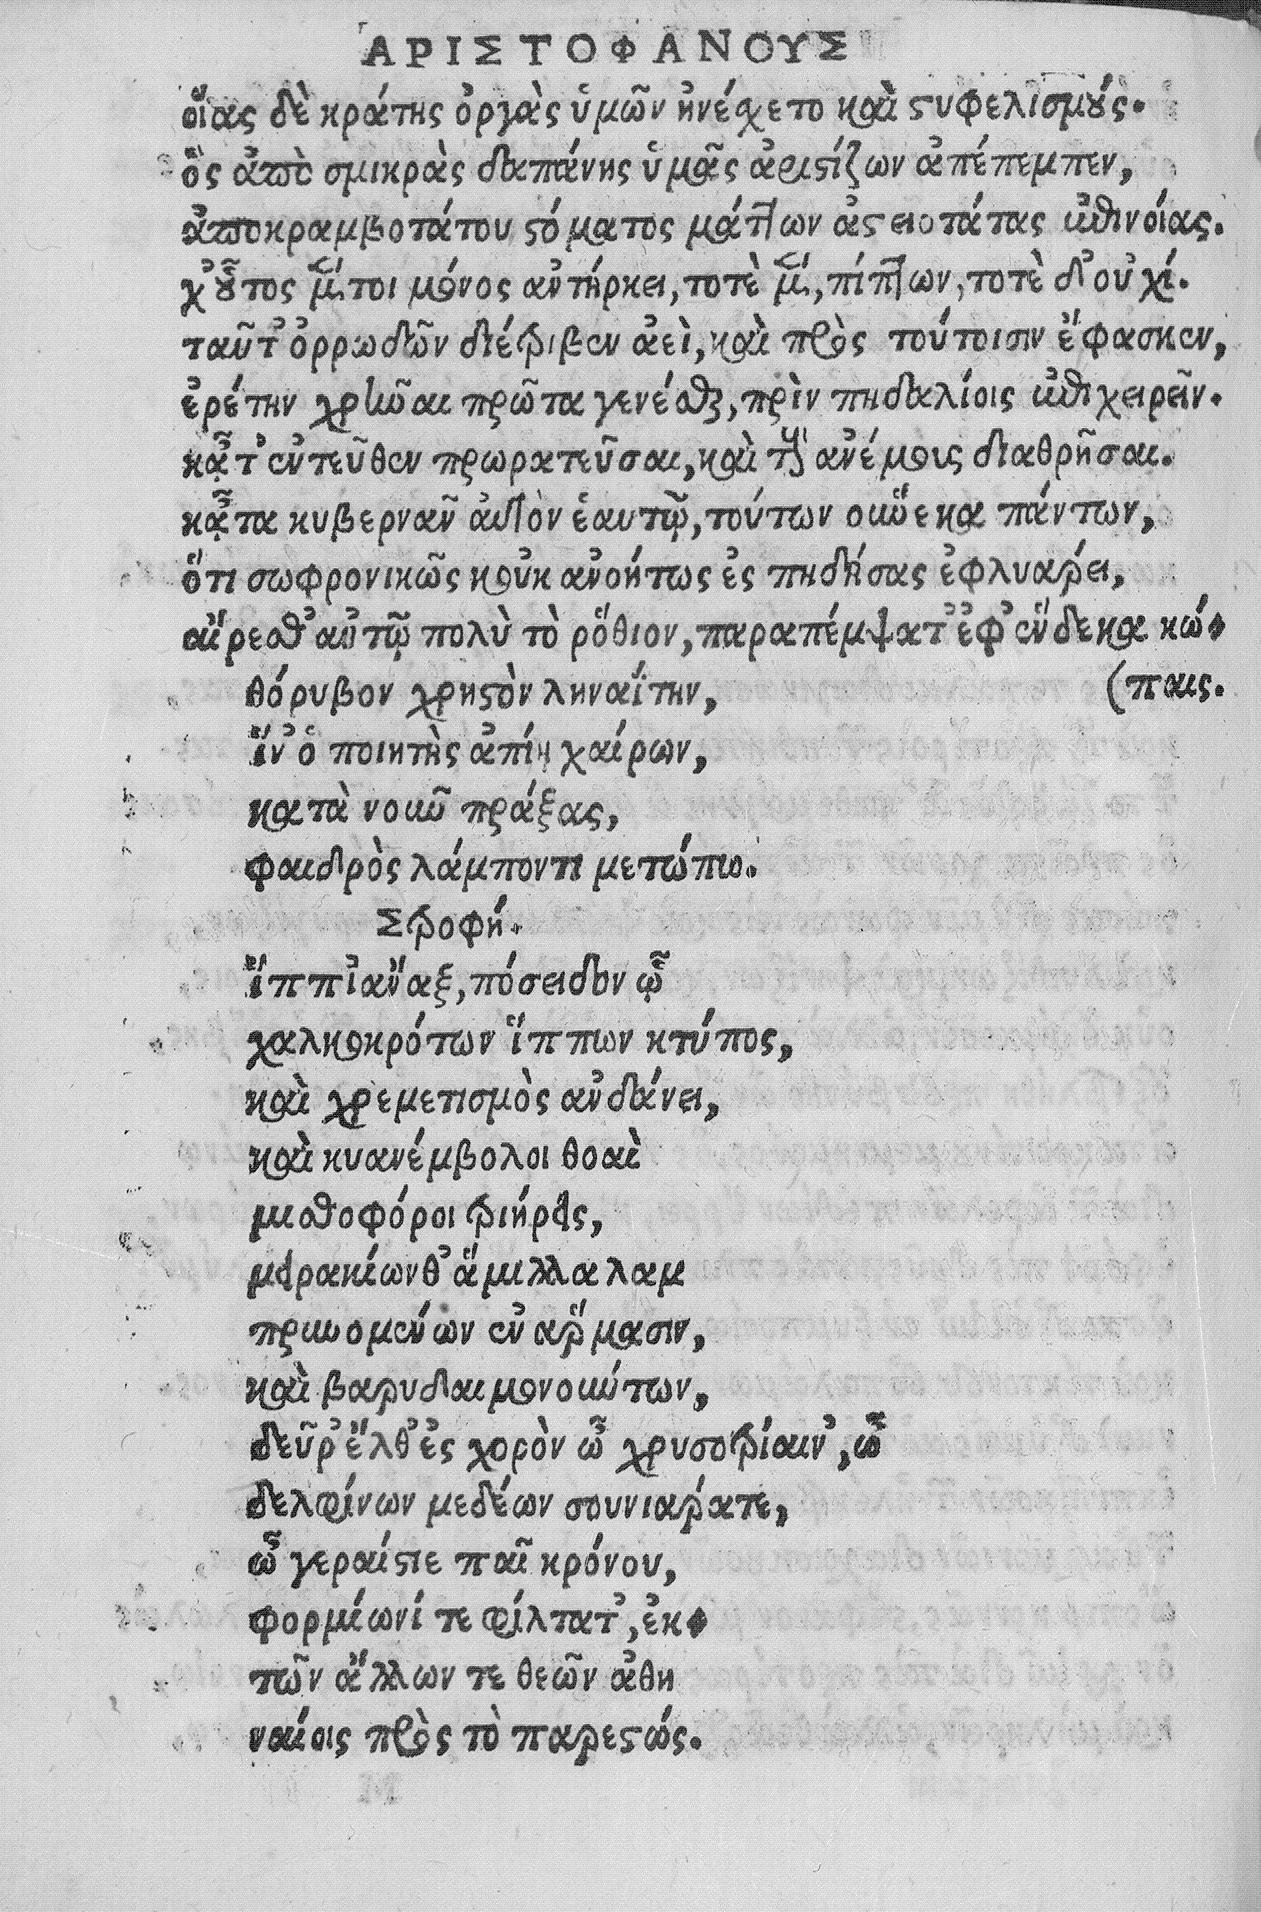 ΑΡΙΣΤΟΦΑΝΟΥΣ
οἵας δὲ κράτης ὀργὰς ὑμῶν ἠνέχετο καὶ στυφελισμούς.
ὃς ἀπὸ σμικρὰς δαπάνης ὑμᾶς ἀριστίζων ἀπέπεμπεν,
ἀποκραμβοτάτου στόματος μάττων ἀστειοτάτας ἐπινοίας.
χοὗτος μέντοι μόνος ἀντήρκει, τοτὲ μὲν, πίπτων, τοτὲ δ' οὐχί.
ταῦτ' ὀρρωδῶν διέτριβεν ἀεὶ, καὶ πρὸς τούτοισιν ἔφασκεν,
ἐρέτην χρῆναι πρῶτα γενέσθαι, πρὶν πηδαλίοις ἐπιχειρεῖν.
κᾆτ' ἐντεῦθεν πρωρατεῦσαι, καὶ τοὺς ἀνέμους διαθρῆσαι.
κᾆτα κυβερνᾶν αὐτὸν ἑαυτῷ, τούτων οὕνεκα πάντων,
ὅτι σωφρονικῶς κοὐκ ἀνοήτως ἐς πηδήσας ἐφλυάρει,
αἴρεσθ' αὐτῷ πολὺ τὸ ῥόθιον, παραπέμψατ' ἐφ' ἕνδεκα κώ-
θόρυβον χρηστὸν ληναΐτην, (παις.
ἵν' ὁ ποιητὴς ἀπίῃ χαίρων,
κατὰ νοῦν πράξας,
φαιδρὸς λάμποντι μετώπῳ.
Στροφή.
ἵππι' ἄναξ, πόσειδον ᾧ
χαλκοκρότων ἵππων κτύπος,
καὶ χρεμετισμὸς ἁνδάνει,
καὶ κυανέμβολοι θοαὶ
μισθοφόροι τριήρεις,
μειρακίων θ' ἅμιλλα λαμ
πρυνομένων ἐν ἅρμασιν,
καὶ βαρυδαιμονούντων,
δεῦρ' ἔλθ' ἐς χορὸν ὦ χρυσοτρίαιν', ὦ
δελφίνων μεδέων σουνιάρατε,
ὦ γεραίστιε παῖ κρόνου,
φορμίωνί τε φίλτατ', ἐκ-
τῶν ἄλλων τε θεῶν ἀθη
ναίοις πρὸς τὸ παρεστώς.